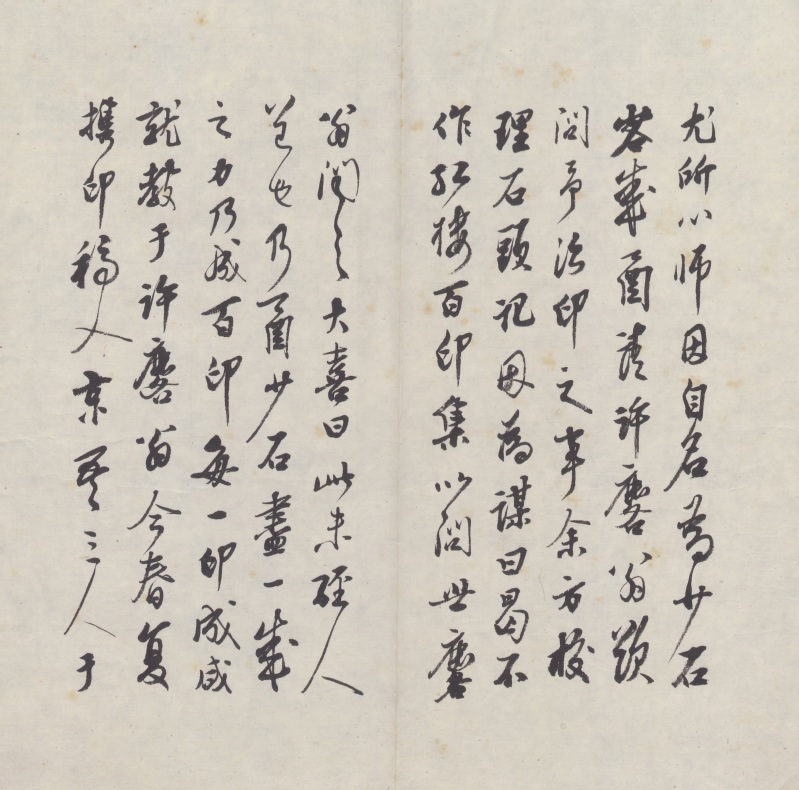 尤所心师因自名為少石
客歲請許麐翁
問予治印之事余方校
理石頭记因為謀曰曷不
作红楼百印集以問世麐
翁聞之大喜曰此未經人
道也乃少石盡一歲
之力乃成百印每一印成咸
就教于許麐翁今春复
携印稿入京吾三人于